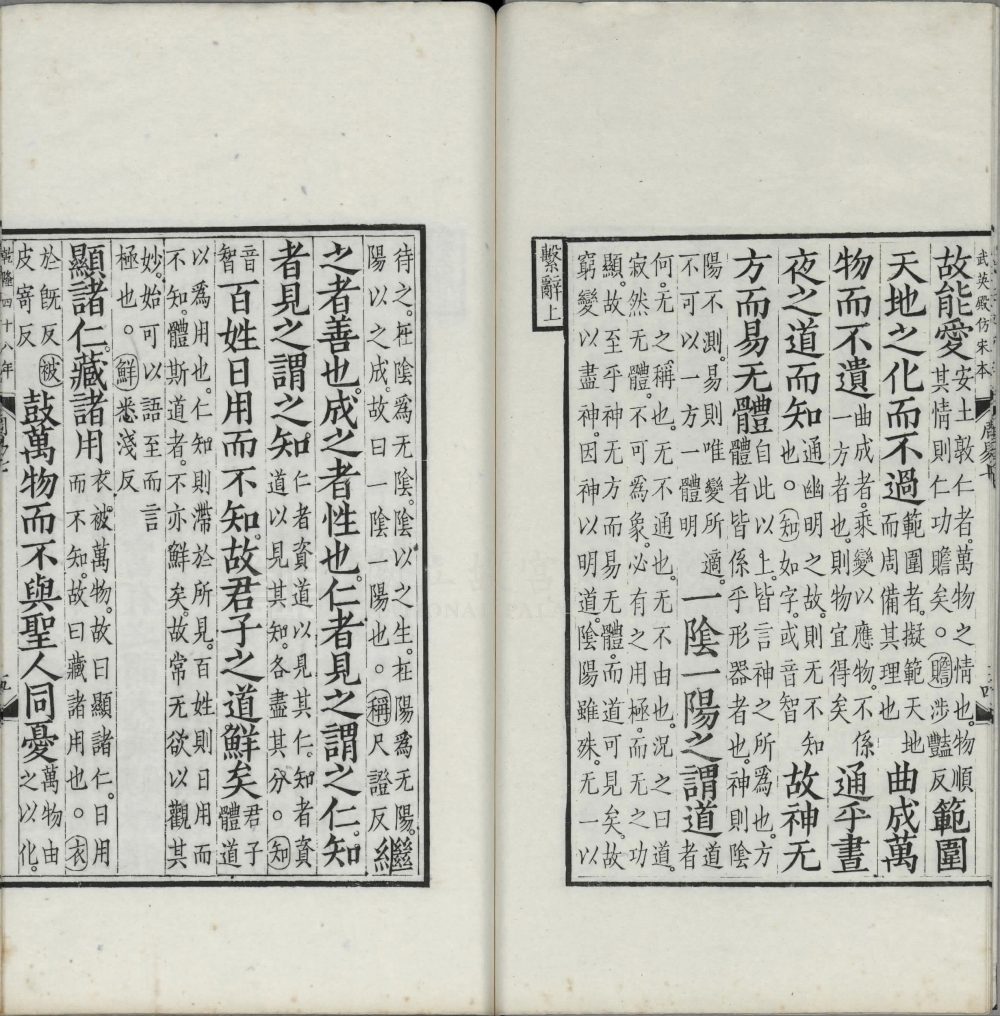 武英殿仿宋本
故能愛安土敦仁者。萬物之情也。物順其情則仁功贍矣。○贍涉豔反範圍
天地之化而不過範圍者。擬範天地而周備其理也曲成萬
物而不遺曲成者。乘變以應物。不係一方者也。則物宜得矣通乎晝
夜之道而知通幽明之故。則无不知也。○知如字。或音智故神无
方而易无體自此以上。皆言神之所為也。方體者皆係乎形器者也。神則陰
陽不測。易則唯變所適。不可以一方一體明一陰一陽之謂道道者
何。无之稱也。无不通也。无不由也。況之曰道。寂然无體。不可為象。必有之用極。而无之功
顯。故至乎神无方而易无體。而道可見矣。故窮變以盡神。因神以明道。陰陽雖殊。无一以
繫辭上
待之。在陰為无陰。陰以之生。在陽為无陽。陽以之成。故曰一陰一陽也。○稱尺證反繼
之者善也。成之者性也。仁者見之謂之仁。知
者見之謂之知。仁者資道以見其仁。知者資道以見其知。各盡其分。○知
音智百姓日用而不知。故君子之道鮮矣君子體道
以為用也。仁知則滯於所見。百姓則日用而不知。體斯道者。不亦鮮矣。故常无欲以觀其
妙。始可以語至而言極也。○鮮悉淺反
顯諸仁。藏諸用衣被萬物。故曰顯諸仁。日用而不知。故曰藏諸用也。○衣
於既反被皮寄反鼓萬物而不與聖人同憂萬物由之以化。
乾隆四十八年